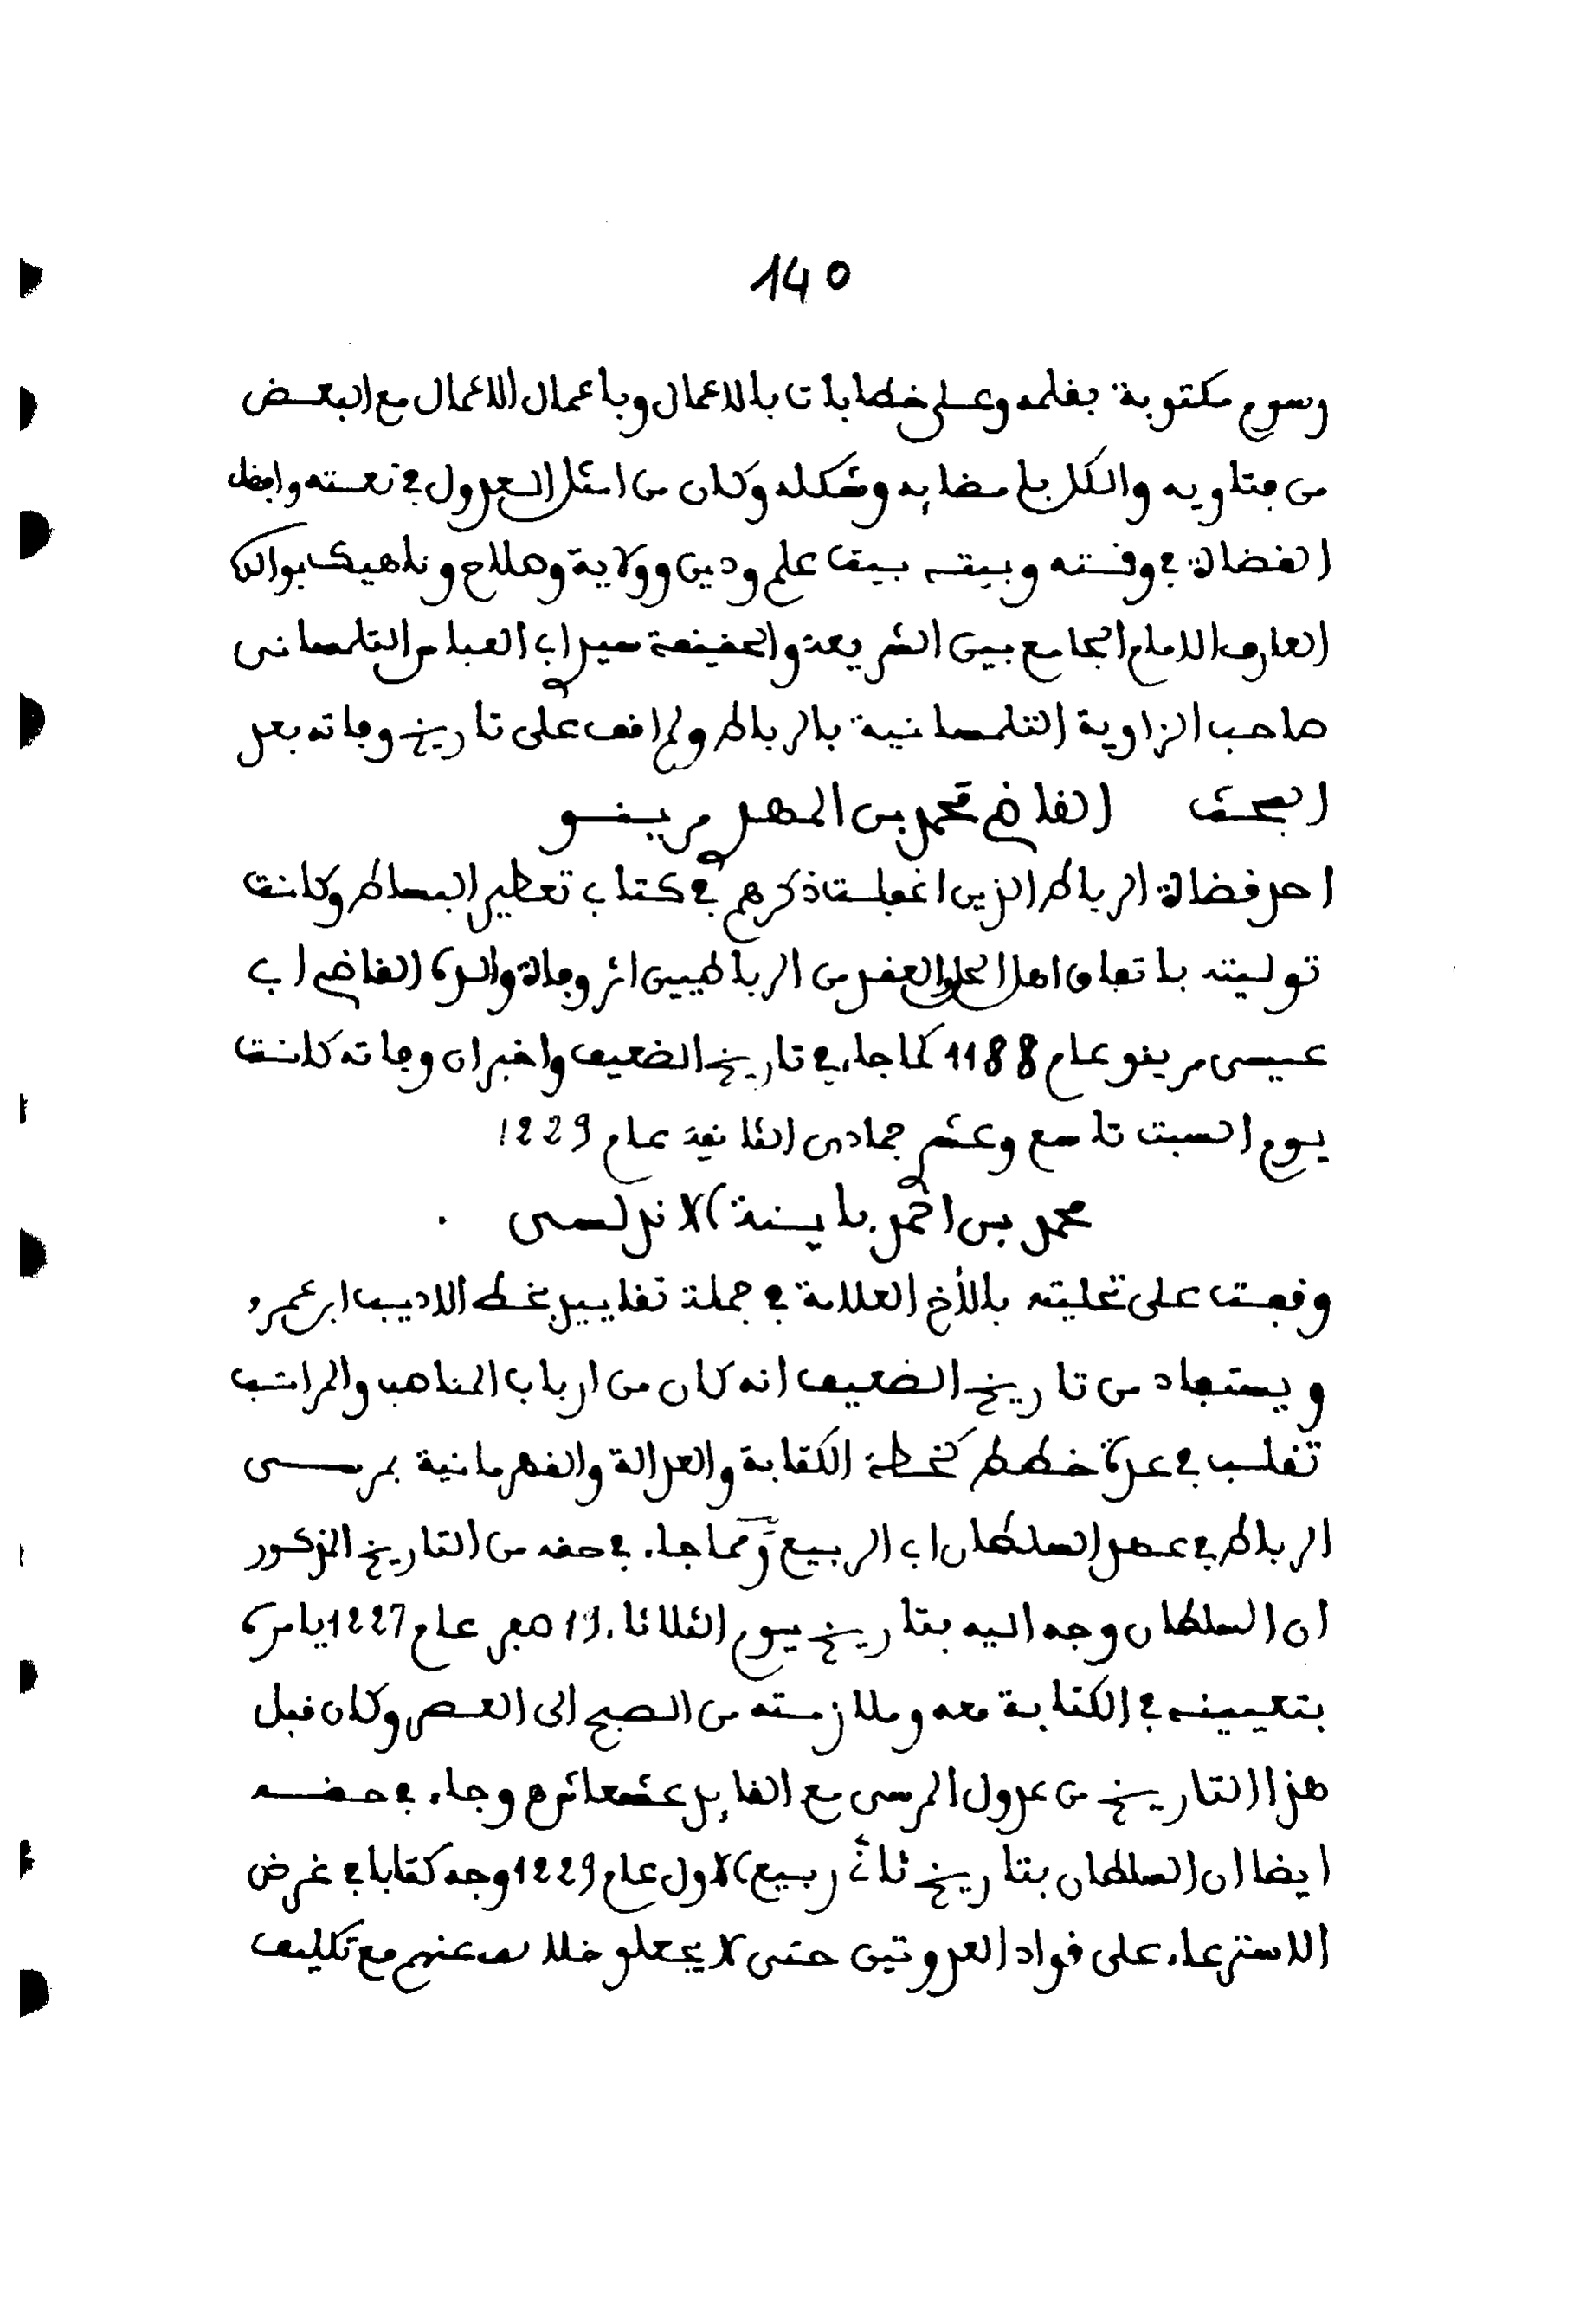 140
رسوم مكتوبة بقلمه وعلى خطابات بالاعمال وباعمال الاعمال مع البعض
من فتاويه والكل بامضايه وشكله وكان من امثل العدول في نعته وافضل
القضاة في وقته وبيته بيت علم ودين وولاية وصلاح وناهيك بوالده
العارف الامام الجامع بين الشريعة والحقيقة سيدي ابي العباس التلمساني
صاحب الزاوية التلمسانية بالرباط ولم اقف على تاريخ وفاته بعد
البحث القاضي محمد بن المهدي مرينو
احد قضاة الرباط الذين اغفلت ذكرهم في كتاب تعطير البساط وكانت
توليته باتفاق اهل الحل والعقد من الرباطيين اثر وفاة والده القاضي ابي
عيسى مرينو عام 1188 كما جاء في تاريخ الضعيف واخبر ان وفاته كانت
يوم السبت تاسع وعشر جمادى الثانية عام 1229
محمد بن احمد باينة الاندلسي
وقفت على تحليته بالأخ العلامة في جملة تقاييد بخط الاديب ابن عمرو
ويستفاد من تاريخ الضعيف انه كان من ارباب المناصب والمراتب
تقلب في عدة خطط كخطة الكتابة والعدالة والقهرمانية بمرسى
الرباط في عهد السلطان ابي الربيع ومما جاء في حقه من التاريخ المذكور
ان السلطان وجه اليه بتاريخ يوم الثلاثاء 19 صفر عام 1227 يامره
بتعيينه في الكتابة معه وملازمته من الصبح الى العصر وكان قبل
هذا التاريخ من عدول المرسى مع القايد عشعاش وجاء في حقه
ايضا ان السلطان بتاريخ ثاني ربيع الاول عام 1229 وجه كتابا في غرض
الاسترعاء على قواد العدوتين حتى لا يجعلو خلاف عنهم مع تكليف